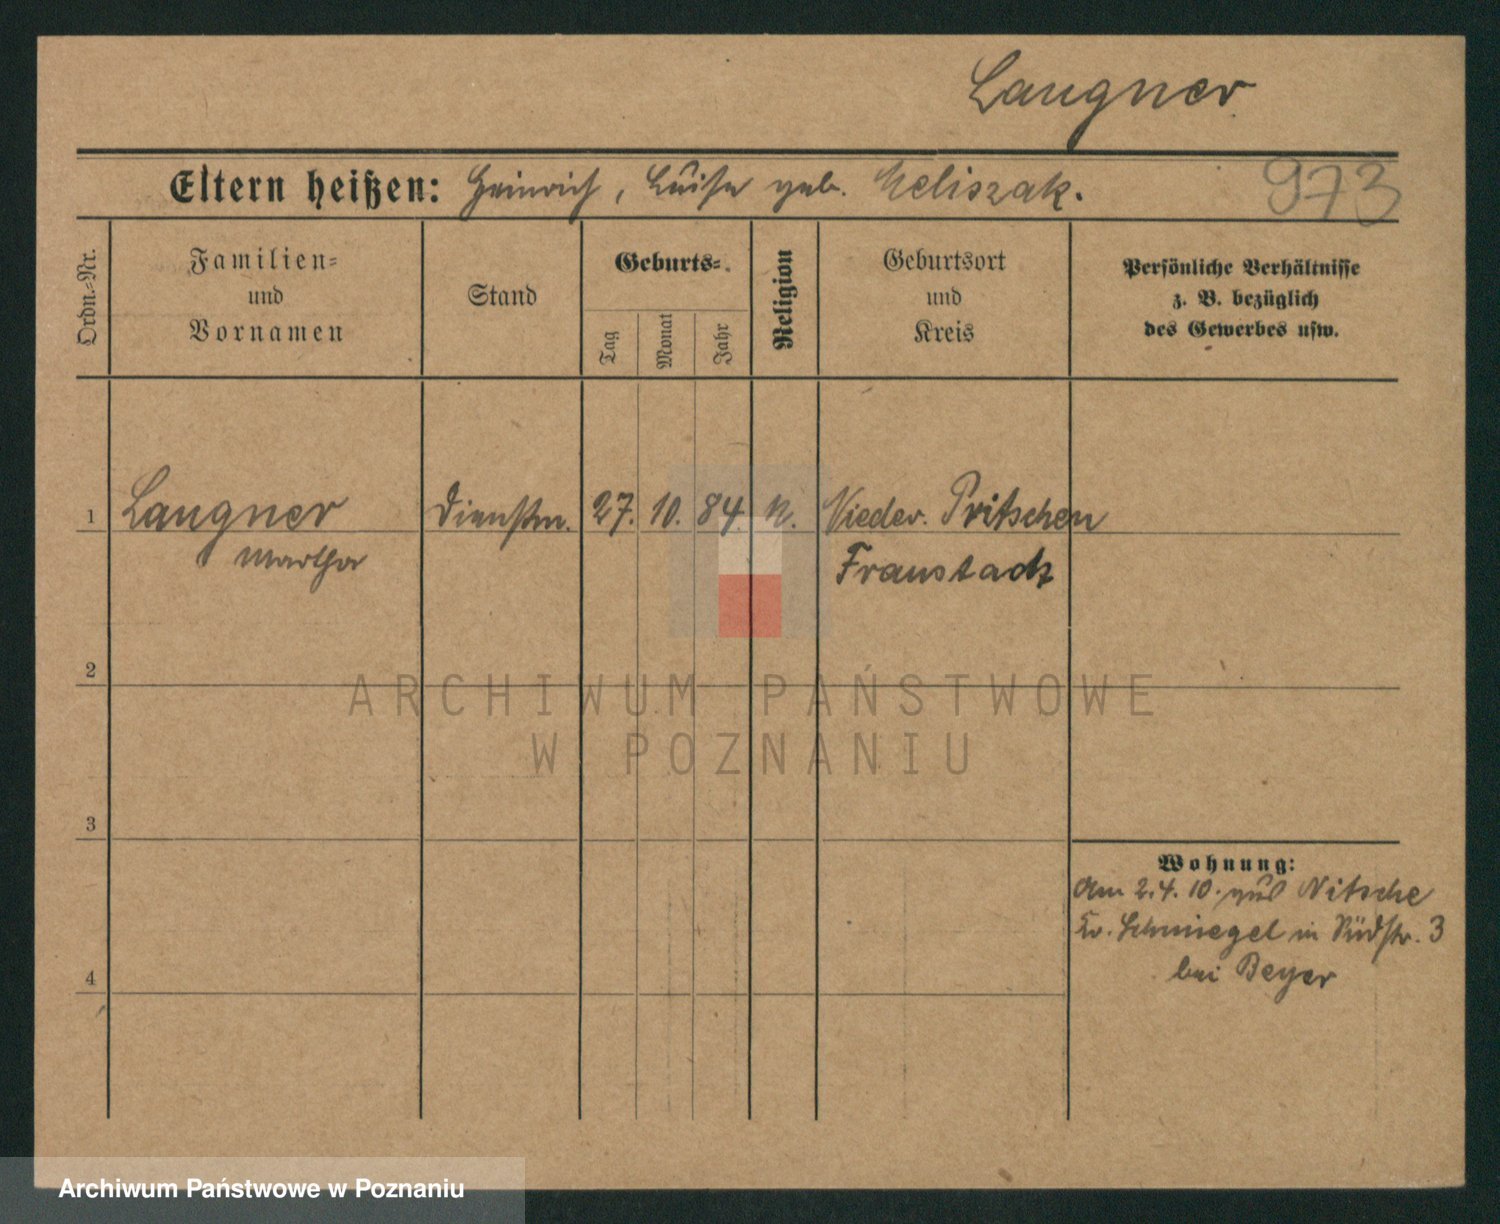 Langner
Eltern heißen: Heinrich, Luise geb. Meliszak.
973
Ordn.-Nr.
Familien-
und
Vornamen
Stand
Geburts-
Tag
Monat
Jahr
Religion
Geburtsort
und
Kreis
Persönliche Verhältnisse
z. B. bezüglich
des Gewerbes usw.
1 Langner Dienstm. 27. 10. 84. Nieder. Pritschen
Martha Fraustadt
2
ARCHIWUM PAŃSTWOWE
W POZNANIU
3
Wohnung:
Am 2.4.10. Nitsche
Kr. Schmiegel in Südstr. 3
bei Beyer
4
Archiwum Państwowe w Poznaniu